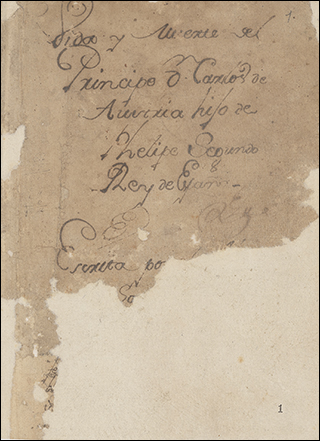 1.
Vida y Muerte del
Principe d. Carlos de
Austria hijo de
Phelipe Segundo
Rey de España
Escrita po
1